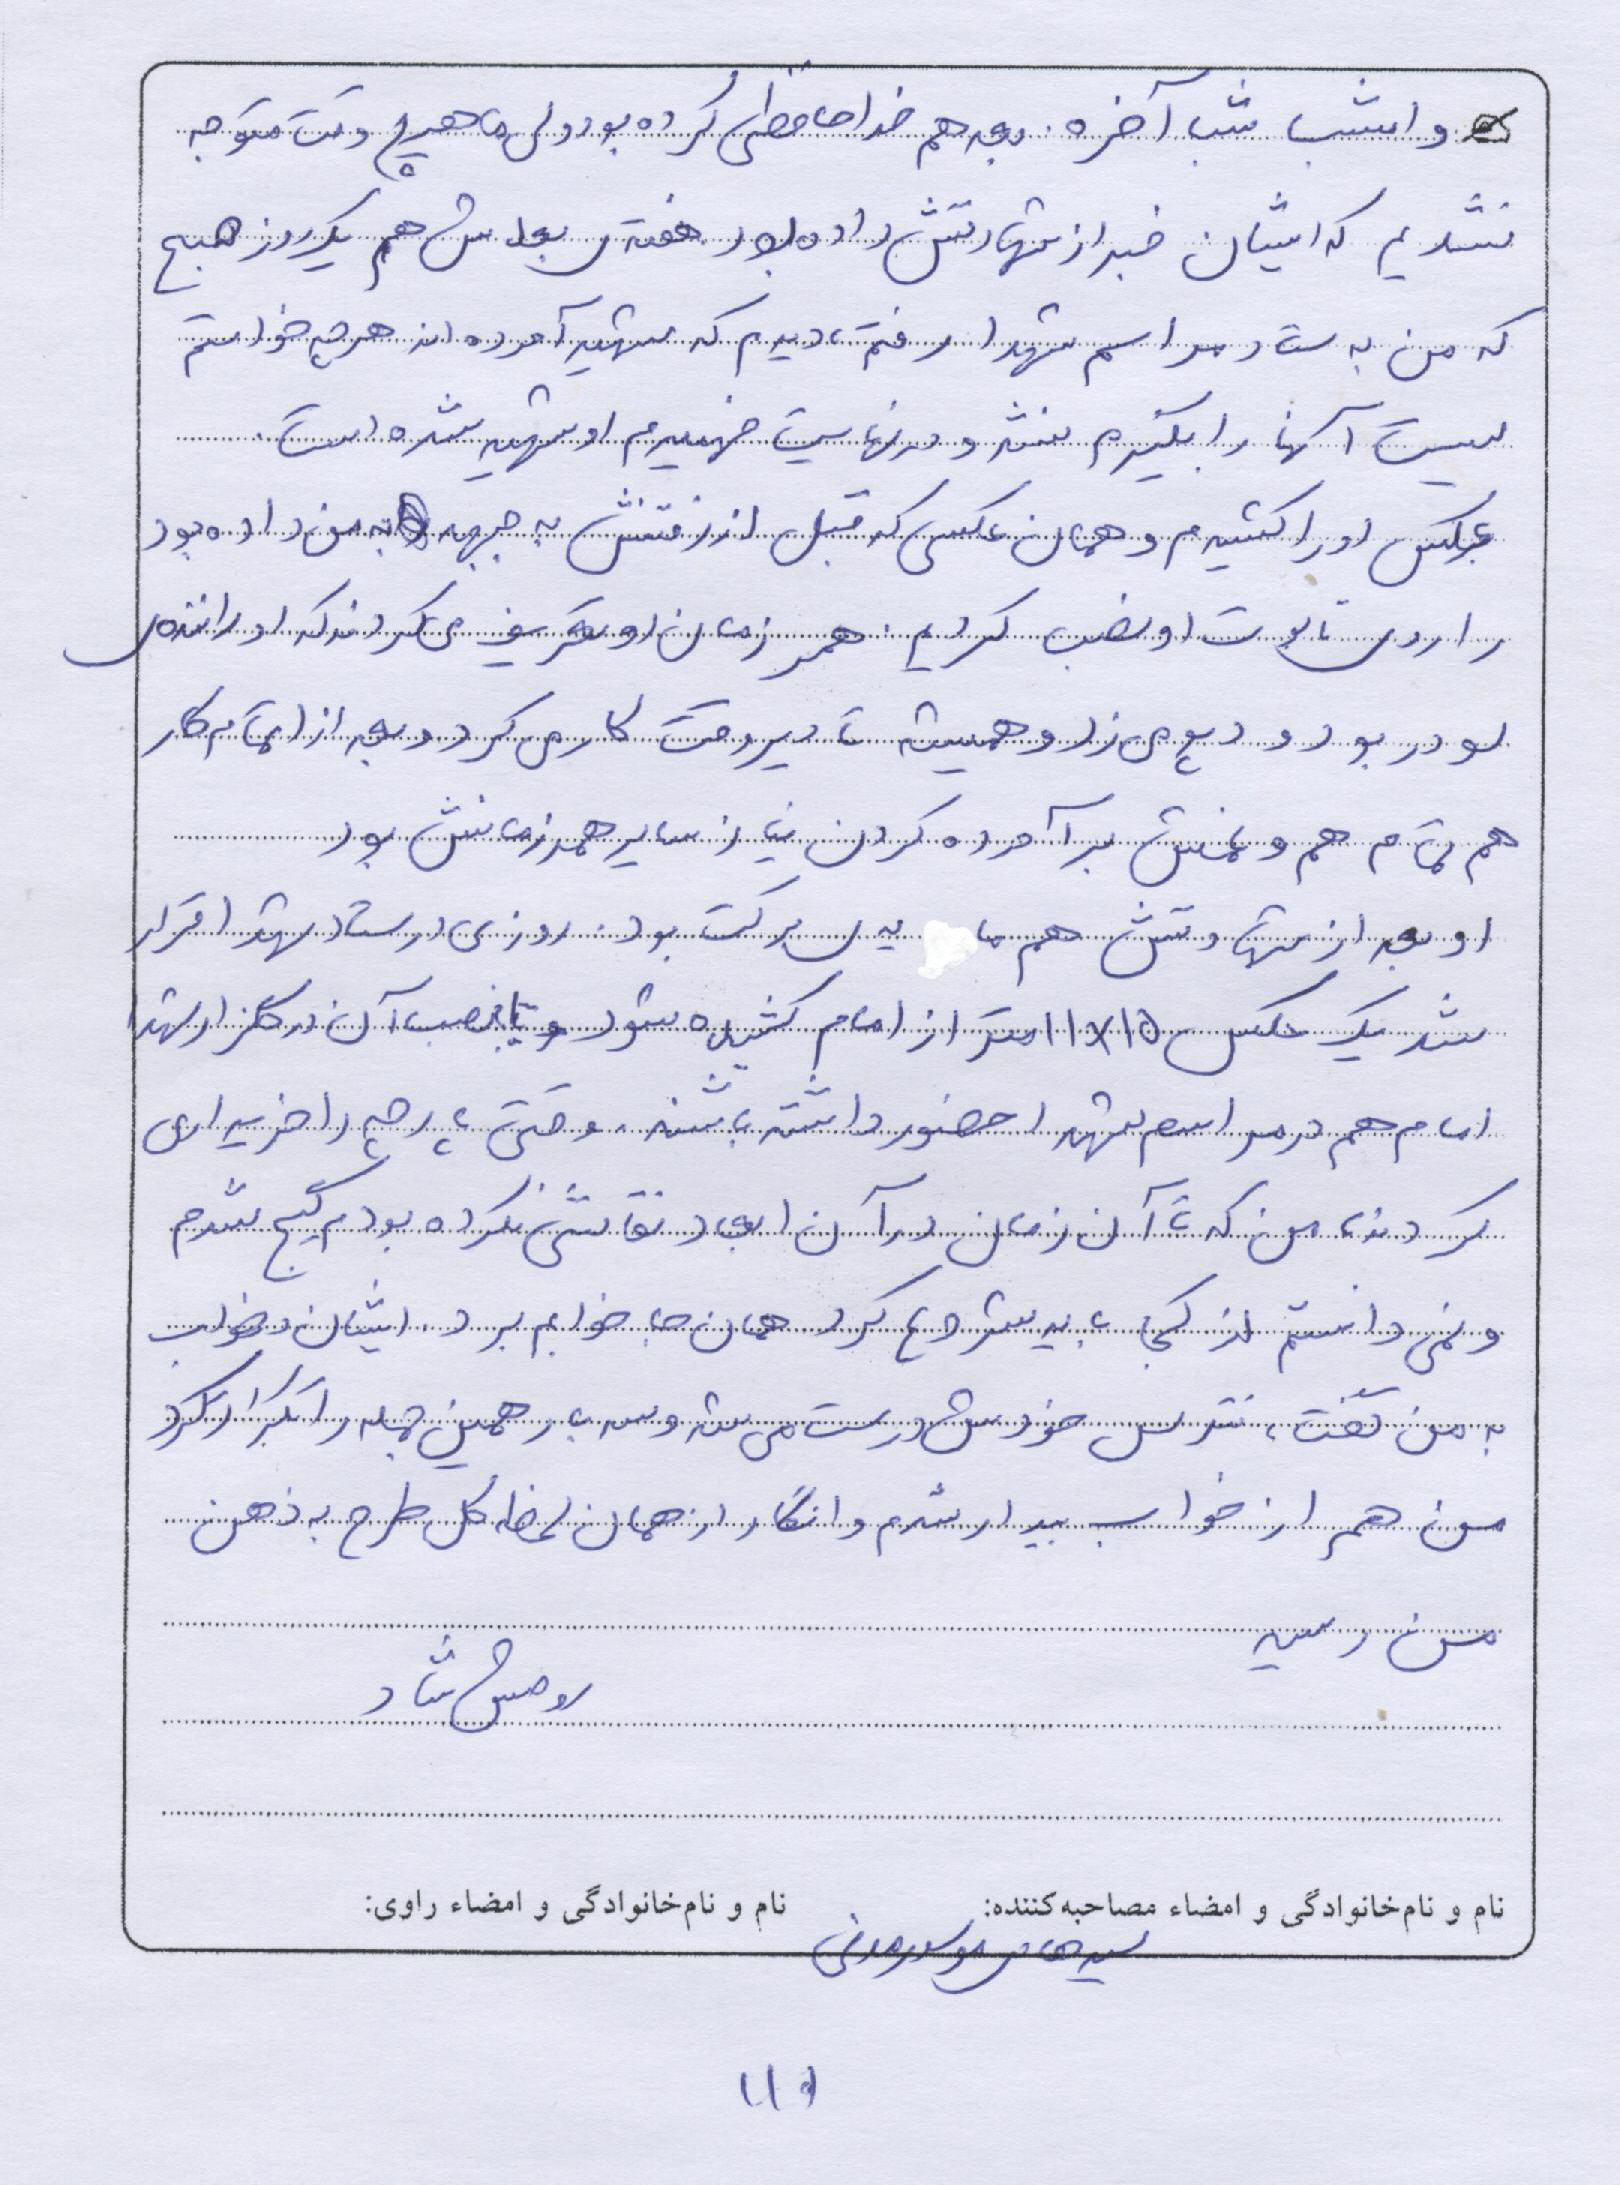 و امشب شب آخره. بعد هم خداحافظی کرده بود ولی ما هیچ وقت متوجه
نشدیم که ایشان خبر از شهادتش داده بود. هفته‌ی بعدش هم یکروز صبح
که من به ستاد مراسم شهدا رفتم، دیدم که شهید آورده‌اند هرچه خواستم
لیست آنها را بگیرم نشد و در نهایت فهمیدم او شهید شده است.
عکس او را کشیدم و همان عکسی که قبل از رفتنش به جبهه به من داده بود
را روی تابوت او نصب کردیم. همرزمان او تعریف می‌کردند که او راننده‌ی
لودر بود و همیشه تا دیر وقت کار می‌کرد و بعد از اتمام کار
هم تمام هم و غمش برآورده کردن نیاز سایر همرزمانش بود
او بعد از شهادتش هم مایه‌ی برکت بود. روزی در ستاد شهدا قرار
شد یک عکس ۱۵×۱۱ متر از امام کشیده شود و با نصب آن در گلزار شهدا
امام هم در مراسم شهدا حضور داشته باشند. وقتی پارچه را خریداری
کردند، من که تا آن زمان در آن ابعاد نقاشی نکرده بودم گیج شدم
و نمی‌دانستم از کجا باید شروع کرد همان جا خوابم برد. ایشان در خواب
به من گفت، نترس خودش درست می‌شه و سه بار همین جمله را تکرار کرد
من هم از خواب بیدار شدم و انگار از همان لحظه کل طرح به ذهن
من رسید
روحش شاد
نام و نام‌خانوادگی و امضاء مصاحبه‌کننده: نام و نام‌خانوادگی و امضاء راوی:
سید